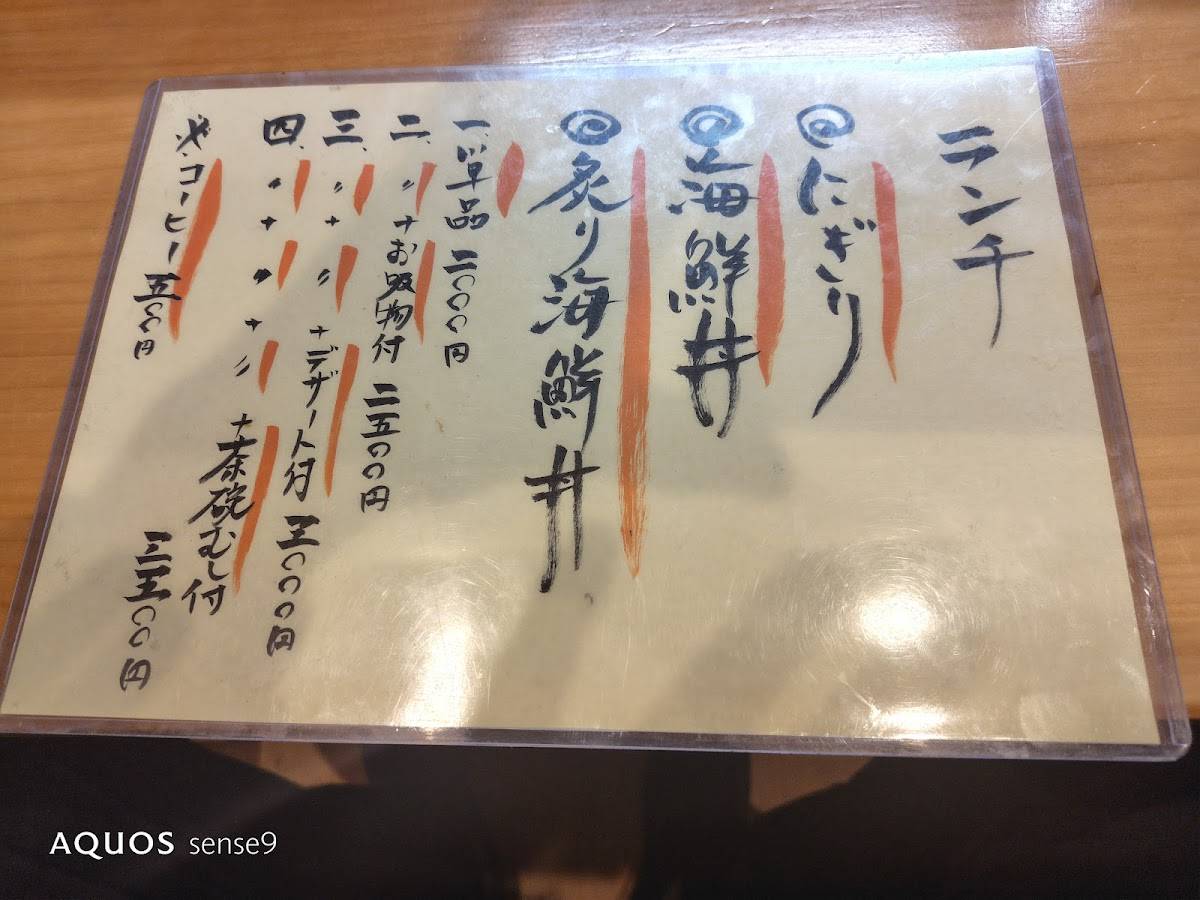 ランチ
◎にぎり
◎海鮮丼
◎炙り海鮮丼
一、単品 二〇〇〇円
二、〃+お吸物付 二五〇〇円
三、〃+〃+デザート付 三〇〇〇円
四、〃+〃+〃+茶碗むし付 三五〇〇円
※コーヒー 五〇〇円
AQUOS sense9